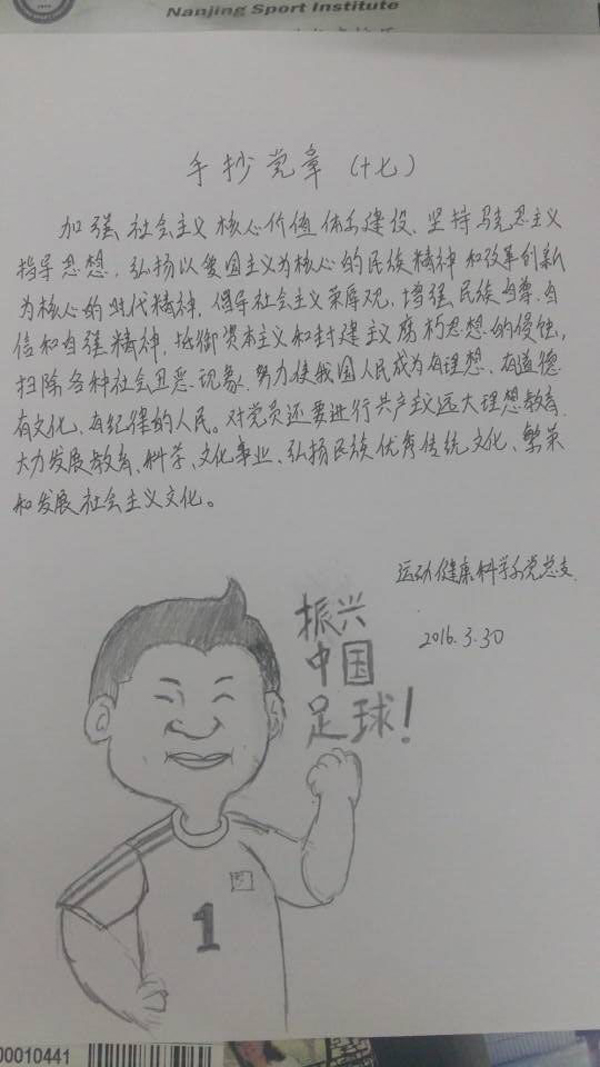 Nanjing Sport Institute
手抄党章（十七）
加强社会主义核心价值体系建设，坚持马克思主义
指导思想，弘扬以爱国主义为核心的民族精神和改革创新
为核心的时代精神，倡导社会主义荣辱观，增强民族自尊、自
信和自强精神，抵御资本主义和封建主义腐朽思想的侵蚀，
扫除各种社会丑恶现象，努力使我国人民成为有理想、有道德
有文化、有纪律的人民。对党员还要进行共产主义远大理想教育.
大力发展教育、科学、文化事业、弘扬民族优秀传统文化、繁荣
和发展社会主义文化。
运动健康科学系党总支
2016.3.30
振兴
中国
足球！
1
00010441